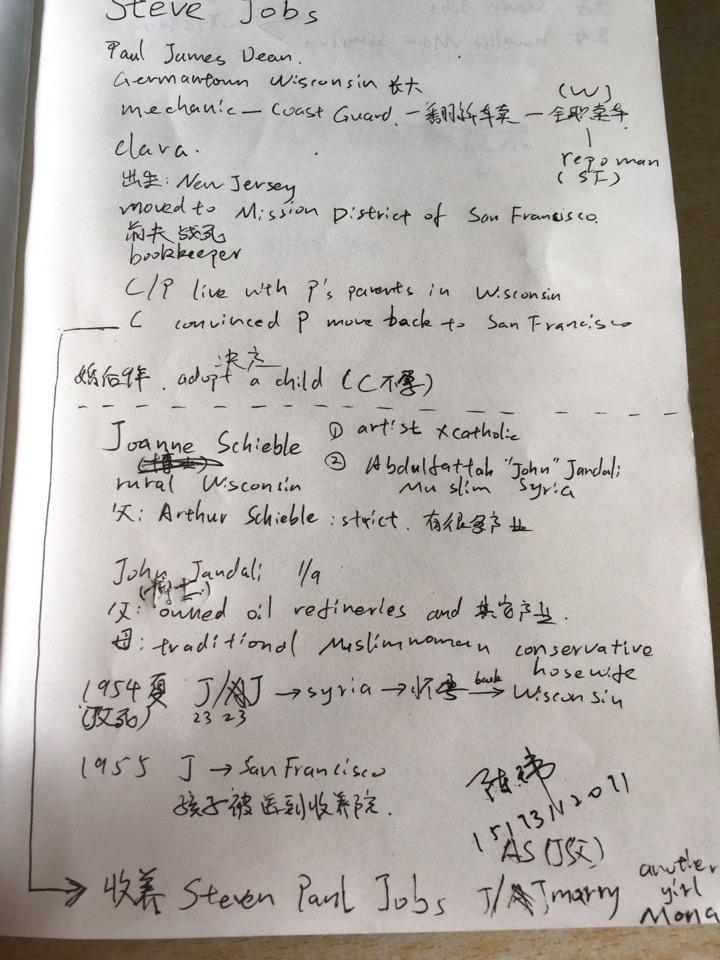 Steve Jobs
Paul James Dean.
Germantown Wisconsin 长大
mechanic — Coast Guard. — 翻新车卖 — 全职卖车
(W)
repo man
(SF)
clara.
出生: New Jersey
moved to Mission District of San Francisco.
前夫战死
bookkeeper
C/P live with P's parents in Wisconsin
C convinced P move back to San Francisco
婚后9年. 决定 adopt a child (C不孕)
Joanne Schieble ① artist x catholic
rural Wisconsin ② Abdulfattah "John" Jandali
Muslim Syria
父: Arthur Schieble: strict. 有很多产业
John Jandali 1/9
(博士)
父: owned oil refineries and 其它产业.
母: traditional Muslim woman conservative
hosewife
1954夏 J/AJ → syria → 怀孕 back → Wisconsin
(父死) 23 23
1955 J → San Francisco
孩子被送到收养院.
陈玮
15173N2011
AS (J父)
→ 收养 Steven Paul Jobs J/AJ marry another
girl
Mona